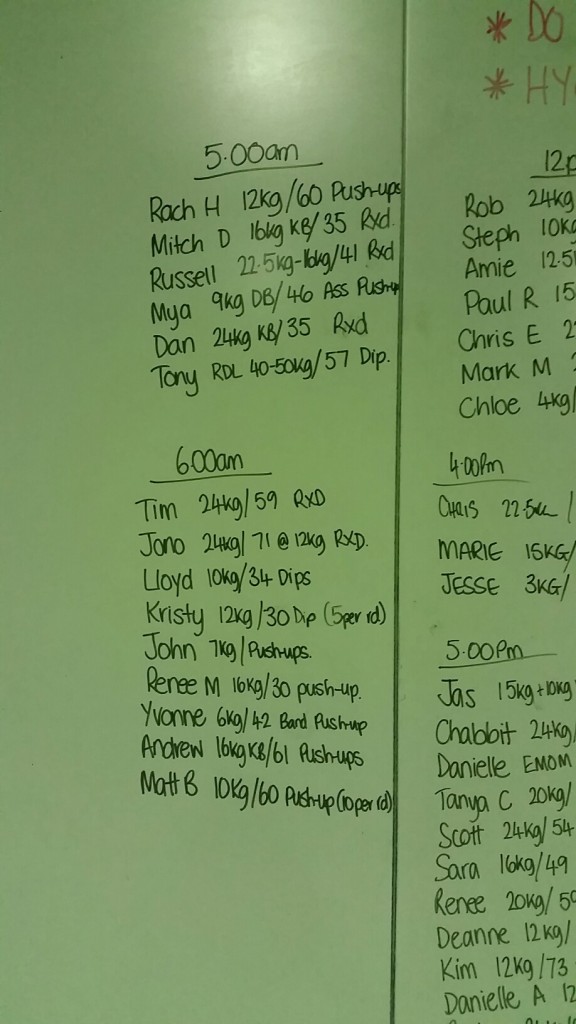 5.00am
Rach H 12kg/60 Push-ups
Mitch D 16kg KB/35 Rxd.
Russell 22.5kg-16kg/41 Rxd
Mya 9kg DB/46 Ass Push-up
Dan 24kg KB/35 Rxd
Tony RDL 40-50kg/57 Dip.
6.00am
Tim 24kg/59 RXD
Jono 24kg/71 @ 12kg RXD.
Lloyd 10kg/34 Dips
Kristy 12kg/30 Dip (5per rd)
John 7kg/Push-ups.
Renee M 16kg/30 push-up.
Yvonne 6kg/42 Band Push-up
Andrew 16kg KB/61 Push-ups
Matt B 10kg/60 Push-up (10 per rd)
* DO
* HY
12p
Rob 24kg
Steph 10kg
Amie 12.5
Paul R 15
Chris E 2
Mark M
Chloe 4kg/
4.00Pm
CHRIS 22.5KG /
MARIE 15KG/
JESSE 3KG/
5.00Pm
Jas 15kg+10kg
Chabbit 24kg/
Danielle EMOM
Tanya C 20kg/
Scott 24kg/54
Sara 16kg/49
Renee 20kg/59
Deanne 12kg/
Kim 12kg/73
Danielle A 12